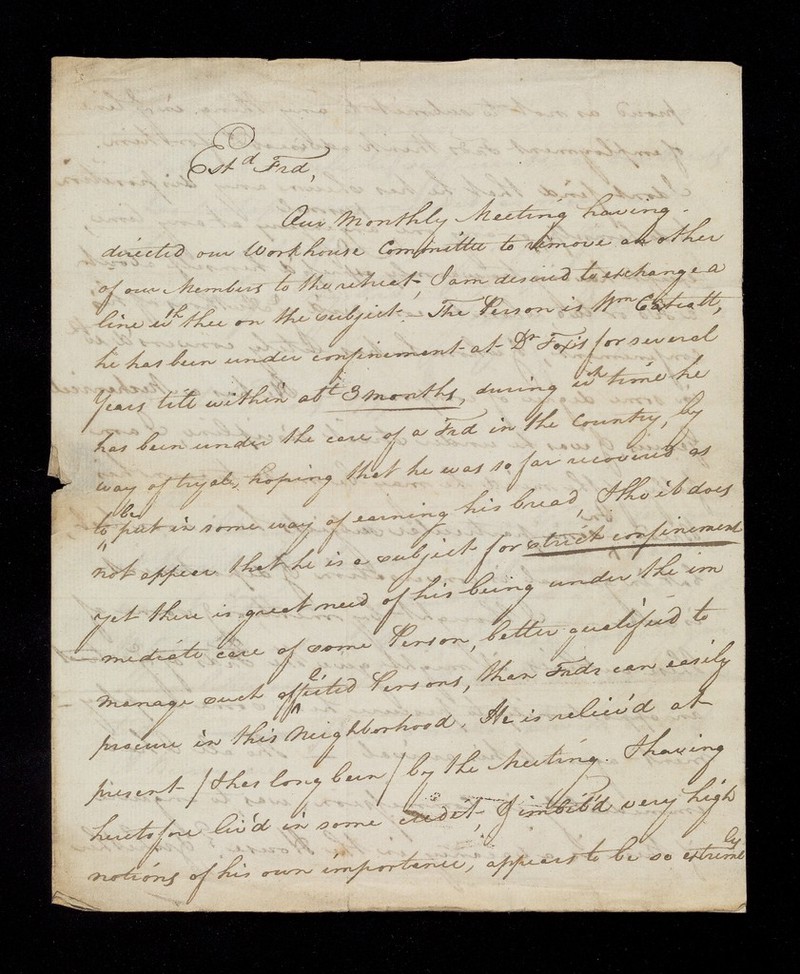 Est^d Frd,
Our Monthly Meeting having
directed our Workhouse Committee to remove another
of our Members to the retreat, I am desired to exchange a
line w^th thee on the subject. The Person is W^m
he has been under confinement at D^r Fox's for several
Years till within ab^t 3 months, during w^ch time he
has been under the care of a Frd in the Country, by
way of tryal, hoping that he was so far recovered as
to be put in some way of earning his bread, & tho' it does
not appear that he is a subject for strict confinement
yet there is great need of his being under the im
mediate care of some Person, better qualified to
manage such affected Persons, than Frds can easily
procure in this Neighborhood. He is reliev'd at
present (& has long been) by the Meeting. & having
heretofore liv'd in some credit, & imbib'd very high
notions of his own importance, appears to be so extremely